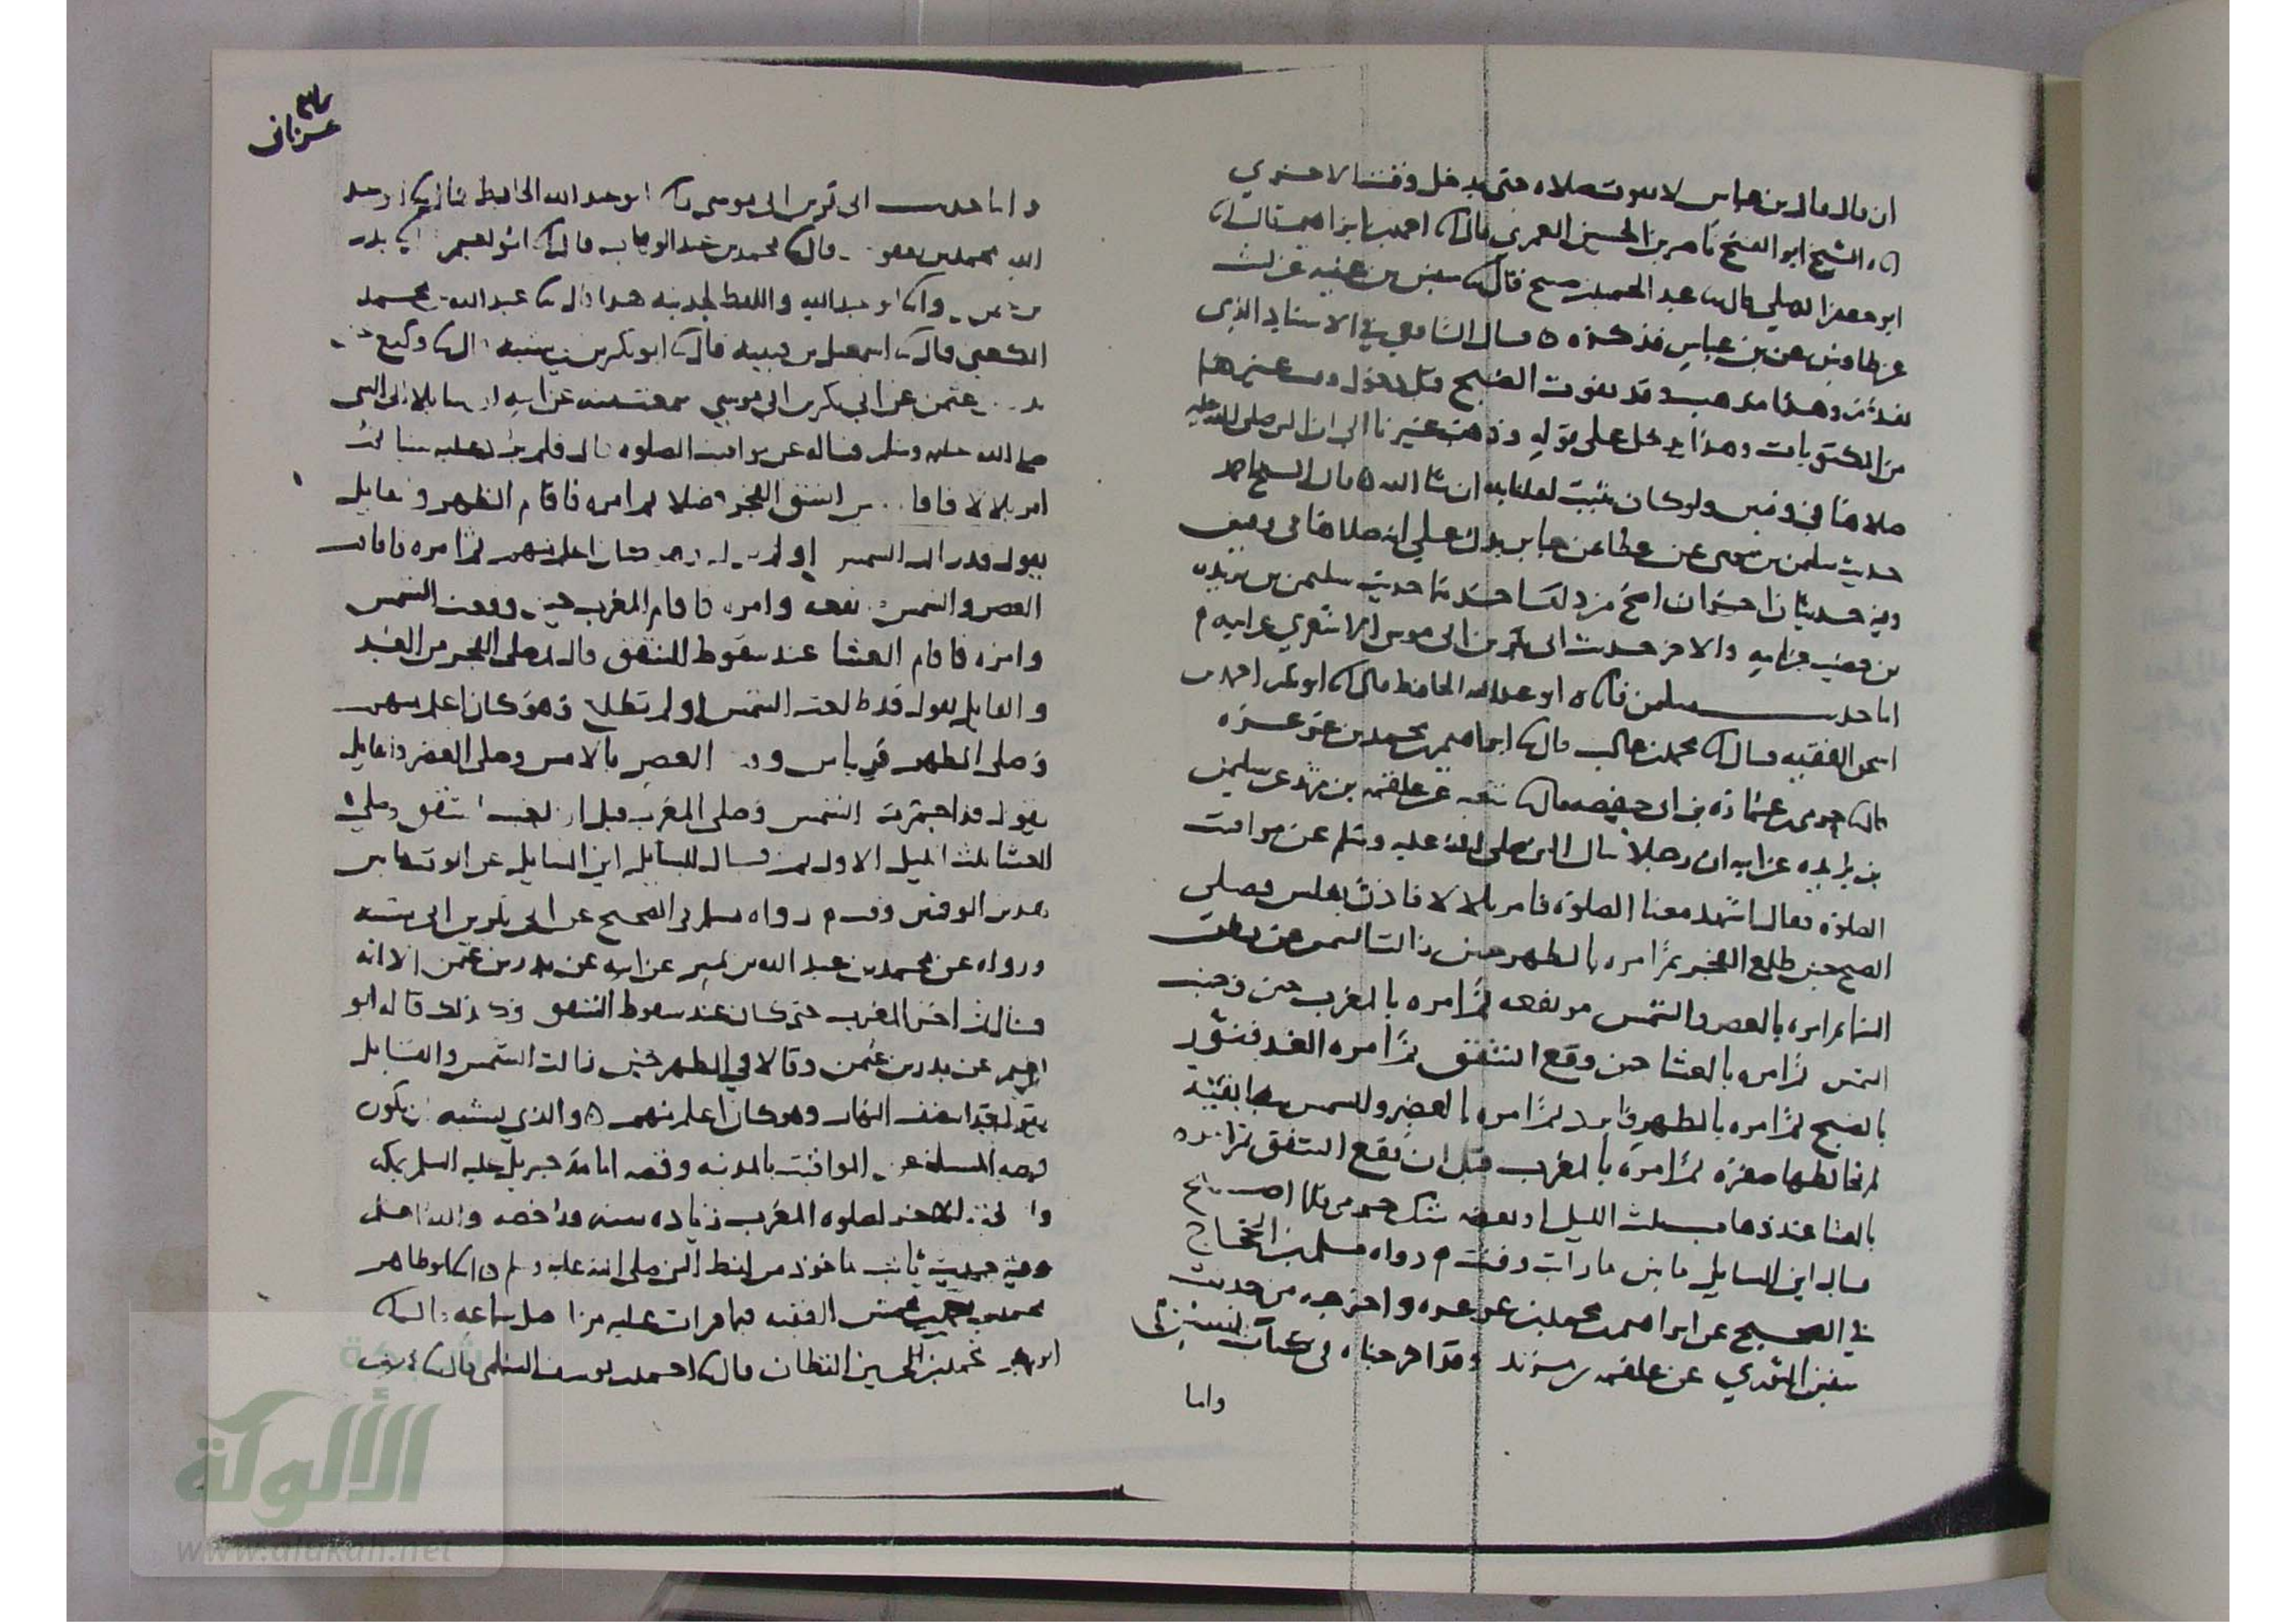 ان قال قال بن عباس لا تفوت صلاه حتى يدخل وقت الاخري
الشيخ ابو الفتح ناصر بن الحسين العمري قال احمد بن ابراهيم قال
ابو جعفر الديلي قال عبد الحميد بن صبيح قال سفين بن عيينه عن ليث
عن طاوس عن بن عباس فذكره ه قال الشافعي في الاسناد الذي
تقدم وهذا مذهب وقد تفوت الصبح قبل دخول وقت غيرها
من المكتوبات وهذا يدخل على قوله وذهب غيرنا الى ان النبي صلى الله عليه
صلاها في وقتين ولو كان يثبت لقلنا به ان شا الله ه قال الشيخ احمد
حديث سليمن بن موسى عن عطا عن جابر يدل على انه صلاها في وقتين
وفيه حديثان اخران اصح من ذلك احدهما حديث سليمن بن بريده
بن حصيب عن ابيه والاخر حديث ابي بكر بن ابي موسى الاشعري عن ابيه م
اما حديث سليمن فانا ه ابو عبد الله الحافظ قال ابو بكر احمد بن
اسحق الفقيه قال محمد بن غالب قال ابراهيم بن محمد بن عرعره
قال حرمي بن عماره بن ابي حفصه قال شعبه عن علقمه بن مرثد عن سليمن
بن بريده عن ابيه ان رجلا سال النبي صلى الله عليه وسلم عن مواقيت
الصلوة فقال اشهد معنا الصلوة فامر بلالا فاذن بغلس فصلى
الصبح حين طلع الفجر ثم امره بالظهر حين زالت الشمس عن بطن
السما ثم امره بالعصر والشمس مرتفعه ثم امره بالمغرب حين وجبت
الشمس ثم امره بالعشا حين وقع الشفق ثم امره الغد فنور
بالصبح ثم امره بالظهر فابرد ثم امره بالعصر والشمس بيضا نقية
لم تخالطها صفرة ثم امره بالمغرب قبل ان يقع الشفق ثم امره
بالعشا عند ذهاب ثلث الليل او بعضه شك حرمي فلما اصبح
قال اين السايل ما بين ما رايت وقت م رواه مسلم بن الحجاج
في الصحيح عن ابراهيم بن محمد بن عرعره واخرجه من حديث
سفين الثوري عن علقمه بن مرثد وقد اخرجناه في كتاب السنن ه
واما
واما حديث ابي بكر بن ابي موسى ابو عبد الله الحافظ قال ابو عبد
الله محمد بن يعقوب قال محمد بن عبد الوهاب قال ابو نعيم بدر
بن عثمن وانا ابو عبد الله واللفظ لحديثه هذا قال عبد الله بن محمد
الكعبي قال اسمعيل بن قتيبه قال ابو بكر بن شيبه قال وكيع عن
بدر بن عثمن عن ابي بكر بن ابي موسى سمعته منه عن ابيه ان سايلا اتى النبي
صلى الله عليه وسلم فساله عن مواقيت الصلوة قال فلم يرد عليه شيا ثم
امر بلالا فاقام حين انشق الفجر فصلا ثم امره فاقام الظهر والقايل
يقول قد زالت الشمس او لم تزل وهو كان اعلم منهم ثم امره فاقام
العصر والشمس مرتفعه وامره فاقام المغرب حين وقعت الشمس
وامره فاقام العشا عند سقوط الشفق قال ثم صلى الفجر من الغد
والقايل يقول قد طلعت الشمس او لم تطلع وهو كان اعلم منهم
وصلى الظهر قريبا من وقت العصر بالامس وصلى العصر والقايل
يقول قد احمرت الشمس وصلى المغرب قبل ان يغيب الشفق وصلى
العشا ثلث الليل الاول ثم قال اين السايل عن الوقت ما بين
هذين الوقتين وقت م رواه مسلم في الصحيح عن ابي بكر بن ابي شيبه
ورواه عن محمد بن عبد الله بن نمير عن ابيه عن بدر بن عثمن الا انه
قال ثم اخر المغرب حتى كان عند سقوط الشفق وكذلك قاله ابو
نعيم عن بدر بن عثمن وقالا في الظهر حين زالت الشمس والقايل
يقول قد انتصف النهار وهو كان اعلم منهم ه والذي يشبه ان يكون
قصة المسله عن المواقيت بالمدينه وقصه امامة جبريل عليه السلم بمكه
والوقت الاخر لصلوة المغرب زيادة منه ورخصه والله اعلم
وفيه حديث ثابت ماخوذ من لفظ النبي صلى الله عليه وسلم ه انا ابو طاهر
محمد بن محمد بن محمش الفقيه فيما قرات عليه من اصل سماعه قال
ابو بكر محمد بن الحسين القطان قال احمد بن يوسف السلمي قال
الألوكة
www.alukah.net